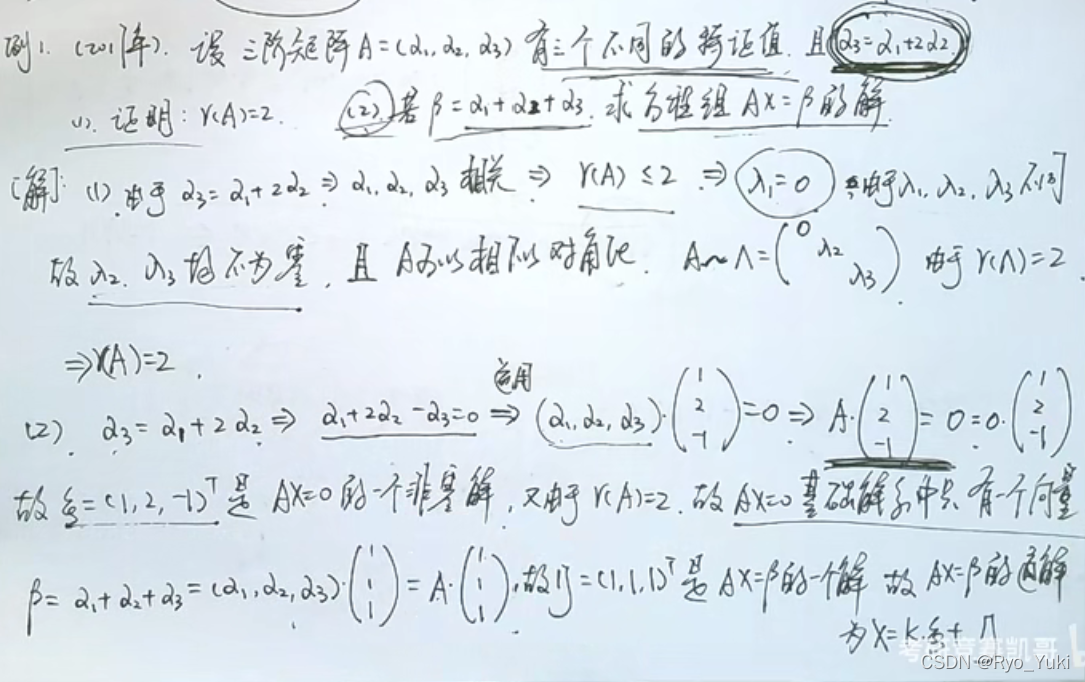 例1. (2017年). 设三阶矩阵A=(α₁,α₂,α₃)有三个不同的特证值. 且α₃=α₁+2α₂.
(1). 证明: r(A)=2. (2) 若β=α₁+α₂+α₃. 求方程组AX=β的解.
[解]: (1). 由于α₃=α₁+2α₂⇒α₁,α₂,α₃相关⇒r(A)≤2⇒λ₁=0 由于λ₁,λ₂,λ₃不同
故λ₂,λ₃均不为零, 且A可以相似对角化. A~Λ=(0 λ₂ λ₃). 由于r(Λ)=2.
⇒r(A)=2.
(2). α₃=α₁+2α₂⇒α₁+2α₂-α₃=0 运用⇒(α₁,α₂,α₃)·(1 2 -1)=0⇒A·(1 2 -1)=0=0·(1 2 -1)
故ξ=(1,2,-1)ᵀ是AX=0的一个非零解, 又由于r(A)=2. 故AX=0基础解系中只有一个向量
β=α₁+α₂+α₃=(α₁,α₂,α₃)·(1 1 1)=A·(1 1 1), 故η=(1,1,1)ᵀ是AX=β的一个解 故AX=β的通解
为X=kξ+η
考研竞赛凯哥
CSDN @Ryo_Yuki